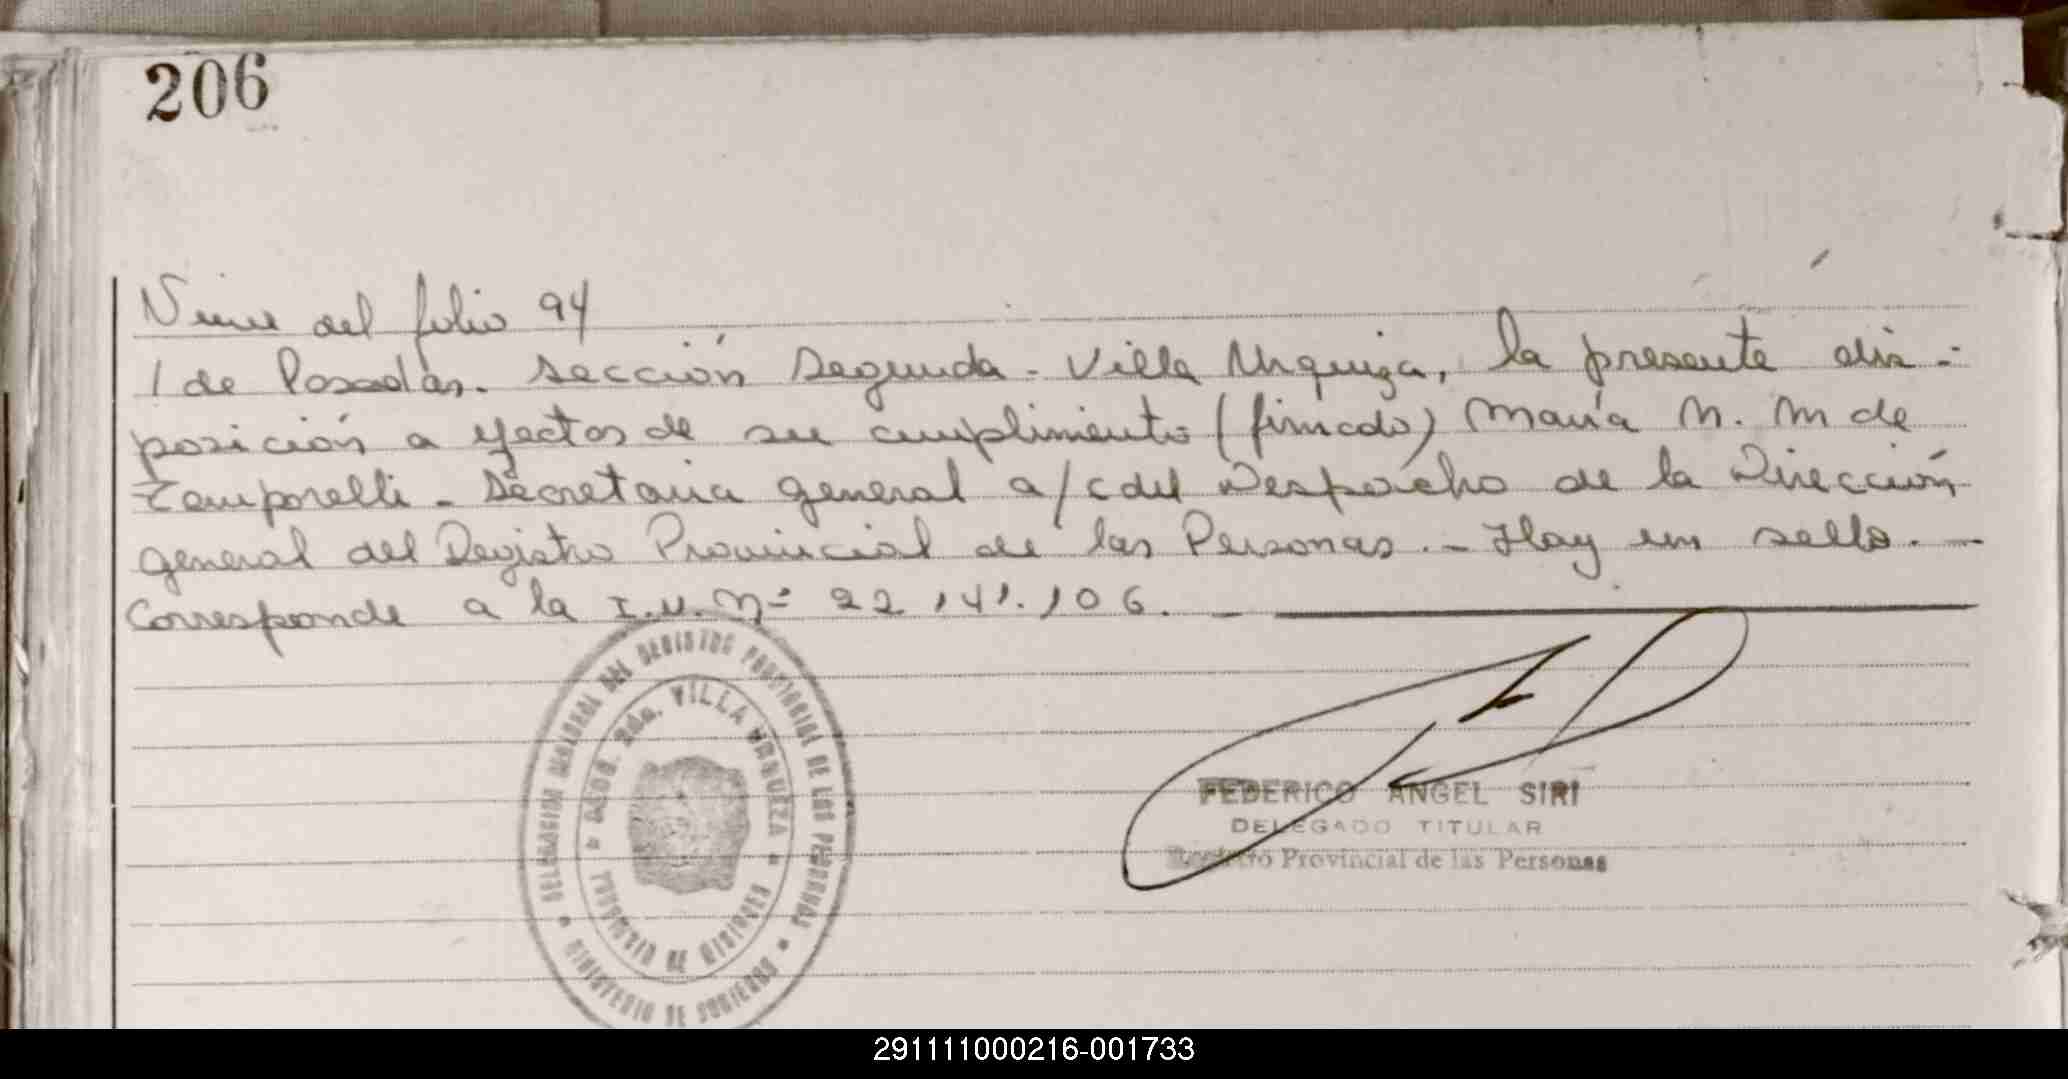 206
Viene del folio 94
/ de Posadas. Sección Segunda - Villa Urquiza, la presente dis-
posición a efectos de su cumplimiento (firmado) María N. M de
Temporelli - Secretaria general a/c del Despacho de la Dirección
general del Registro Provincial de las Personas. - Hay un sello. -
Corresponde a la I.U. Nº 22.141.106. -
DELEGACION REGIONAL DEL REGISTRO PROVINCIAL DE LAS PERSONAS
MINISTERIO DE GOBIERNO
2da. VILLA URQUIZA
PROVINCIA DE MISIONES
FEDERICO ANGEL SIRI
DELEGADO TITULAR
Registro Provincial de las Personas
291111000216-001733